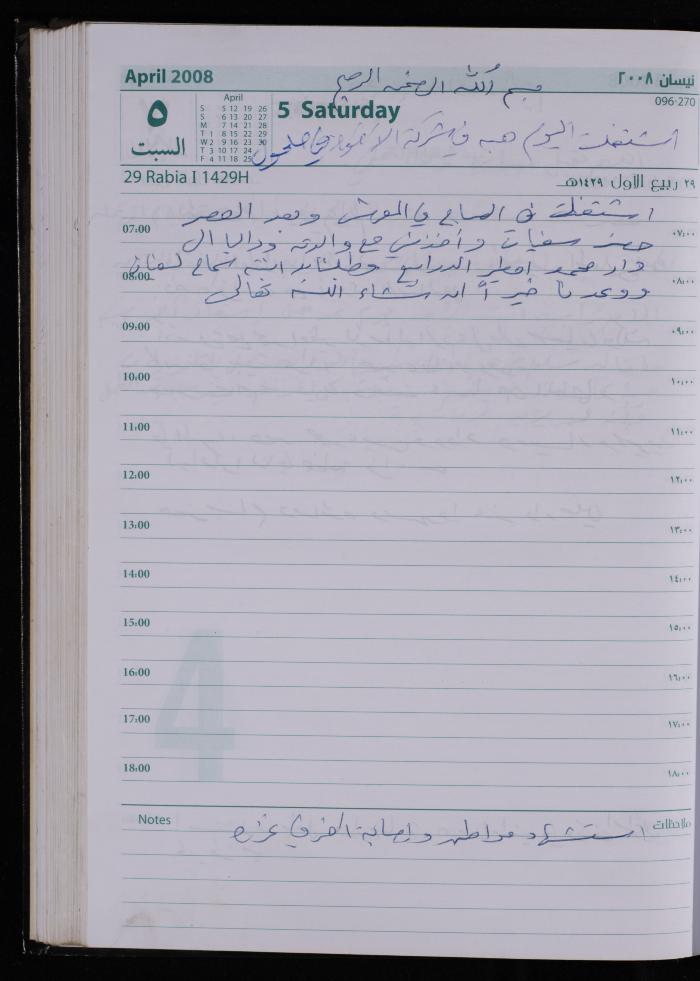 April 2008
نيسان ٢٠٠٨
بسم الله الرحمن الرحيم
096-270
٥
السبت
April
S 5 12 19 26
S 6 13 20 27
M 7 14 21 28
T 1 8 15 22 29
W 2 9 16 23 30
T 3 10 17 24
F 4 11 18 25
5 Saturday
اشتغلت اليوم هبه في شركة
29 Rabia I 1429H
٢٩ ربيع الاول ١٤٢٩هـ
اشتغلت في الصباح في الورش وبعد العصر
07:00 ٠٧:٠٠
حضر سفيان وأخذني مع والدته
دار محمد وطلبنا
08:00 ٠٨:٠٠
ووعدنا خيراً ان شاء الله تعالى
09:00 ٠٩:٠٠
10:00 ١٠:٠٠
11:00 ١١:٠٠
12:00 ١٢:٠٠
13:00 ١٣:٠٠
14:00 ١٤:٠٠
15:00 ١٥:٠٠
16:00 ١٦:٠٠
17:00 ١٧:٠٠
18:00 ١٨:٠٠
4
Notes
ملاحظات
استشهاد مواطن واصابة اخر في غزه